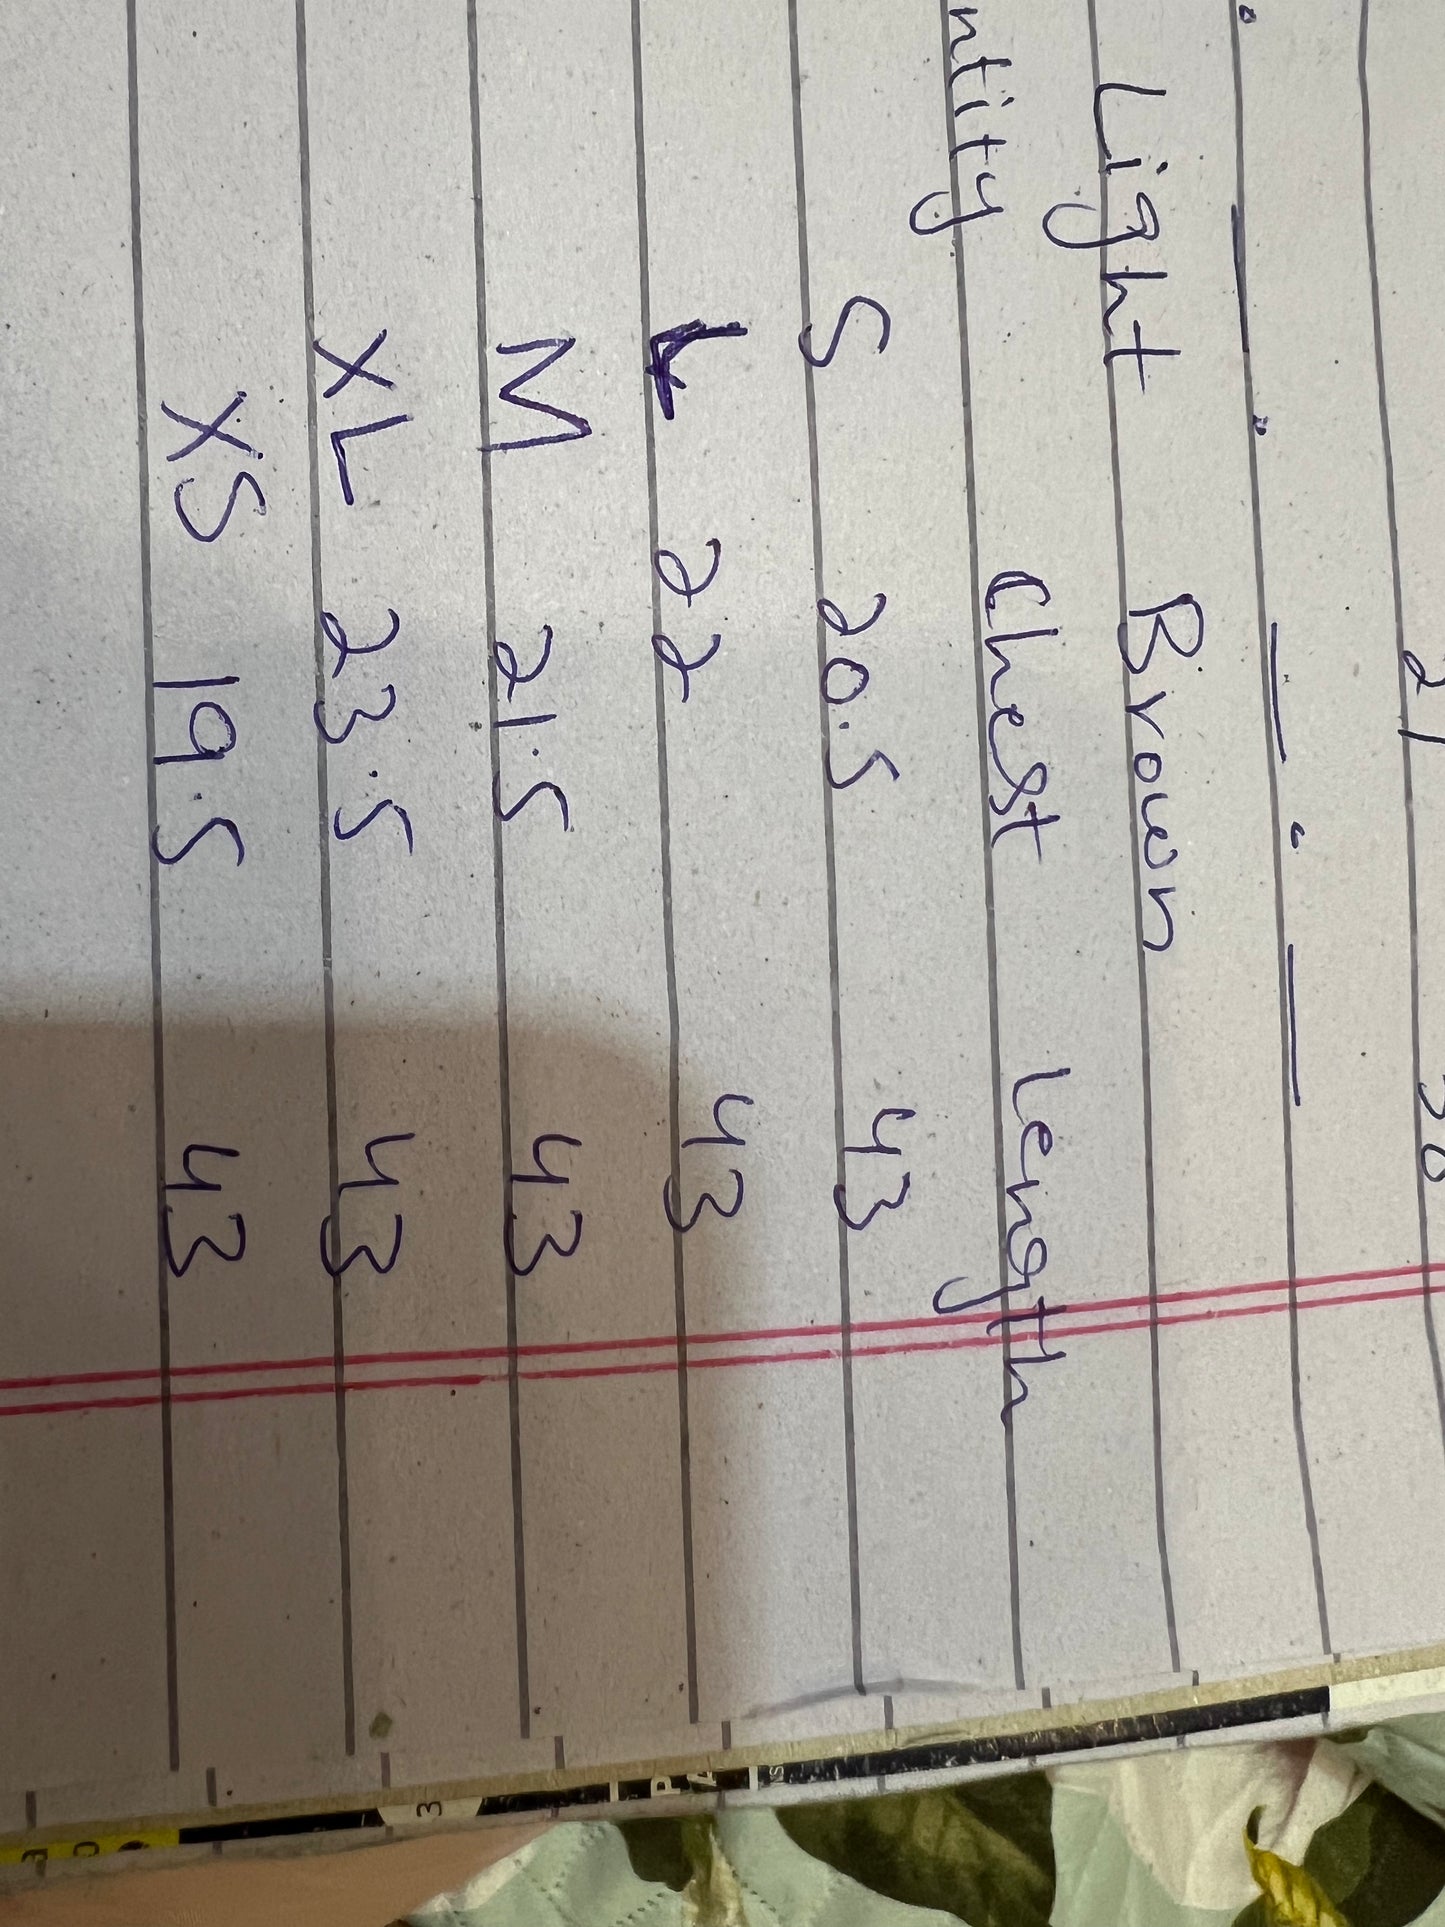 Light Brown
ntity Chest Length
S 20.5 43
L 22 43
M 21.5 43
XL 23.5 43
XS 19.5 43